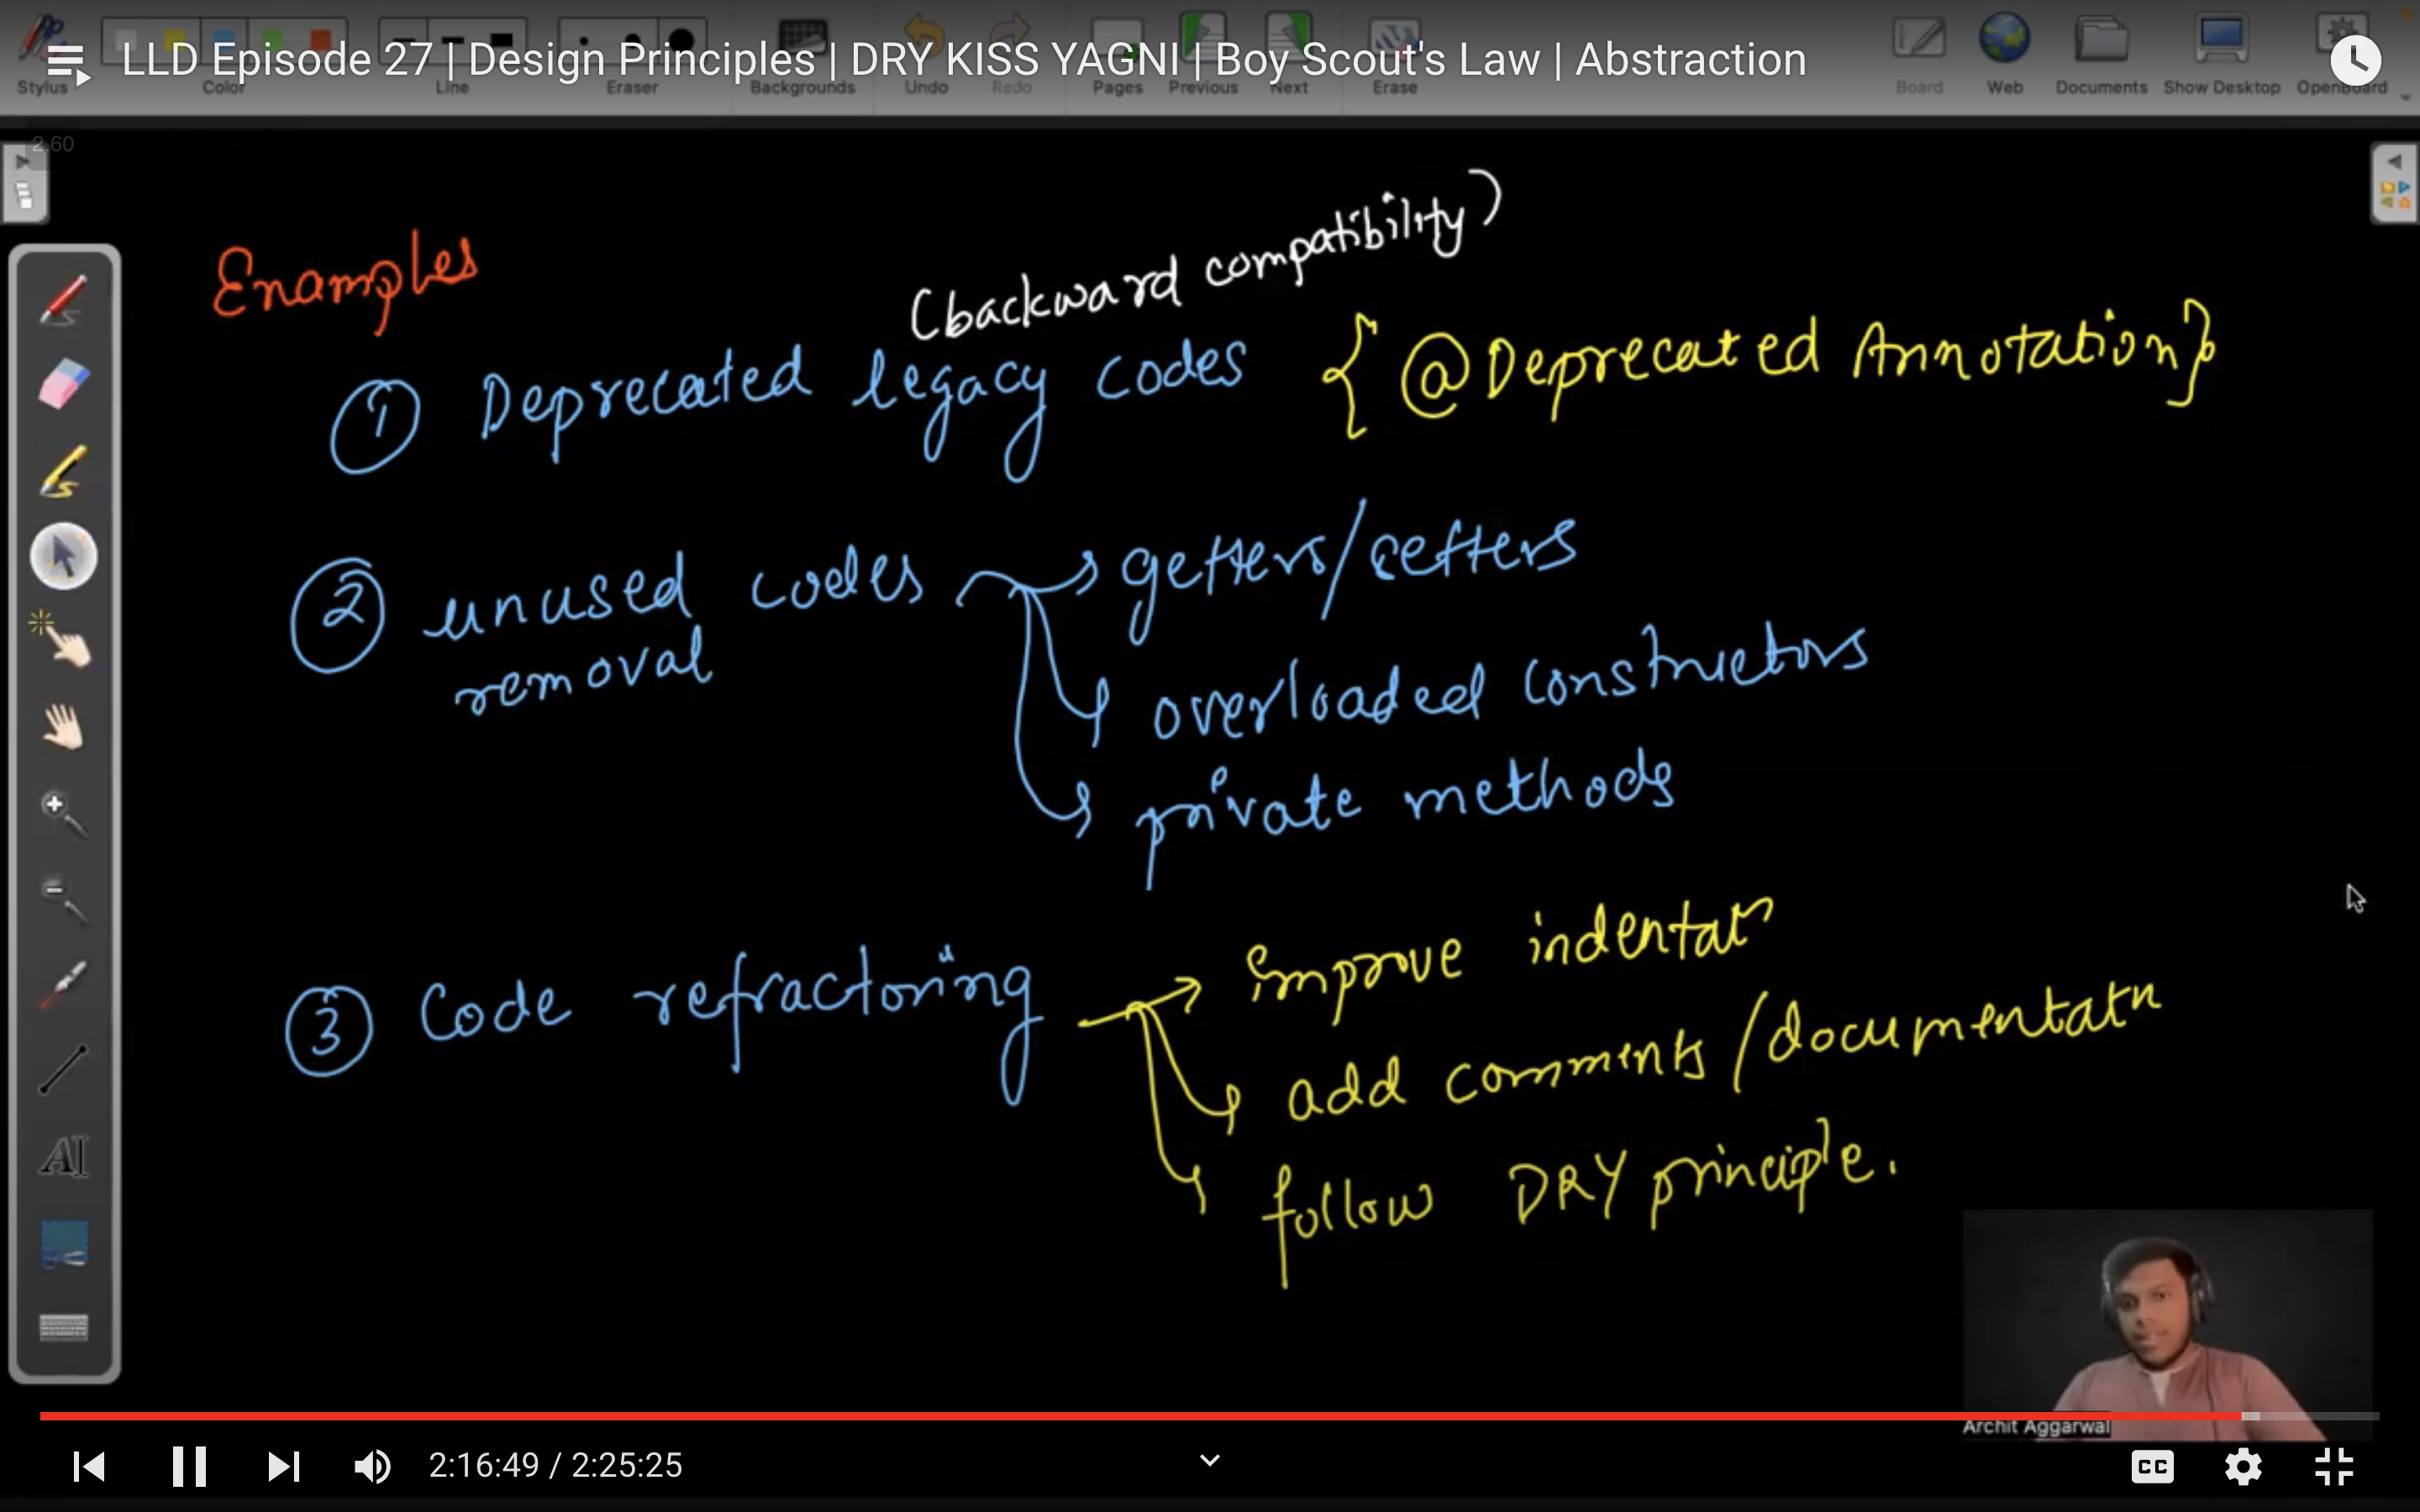 LLD Episode 27 | Design Principles | DRY KISS YAGNI | Boy Scout's Law | Abstraction
Stylus Color Line Eraser Backgrounds Undo Redo Pages Previous Next Erase Board Web Documents Show Desktop OpenBoard
2.60
Examples
(backward compatibility)
① Deprecated legacy codes { @Deprecated Annotation}
② unused codes removal
getters/setters
overloaded constructors
private methods
③ Code refractoring
improve indentatn
add comments/documentatn
follow DRY principle.
AI
Archit Aggarwal
2:16:49 / 2:25:25
CC